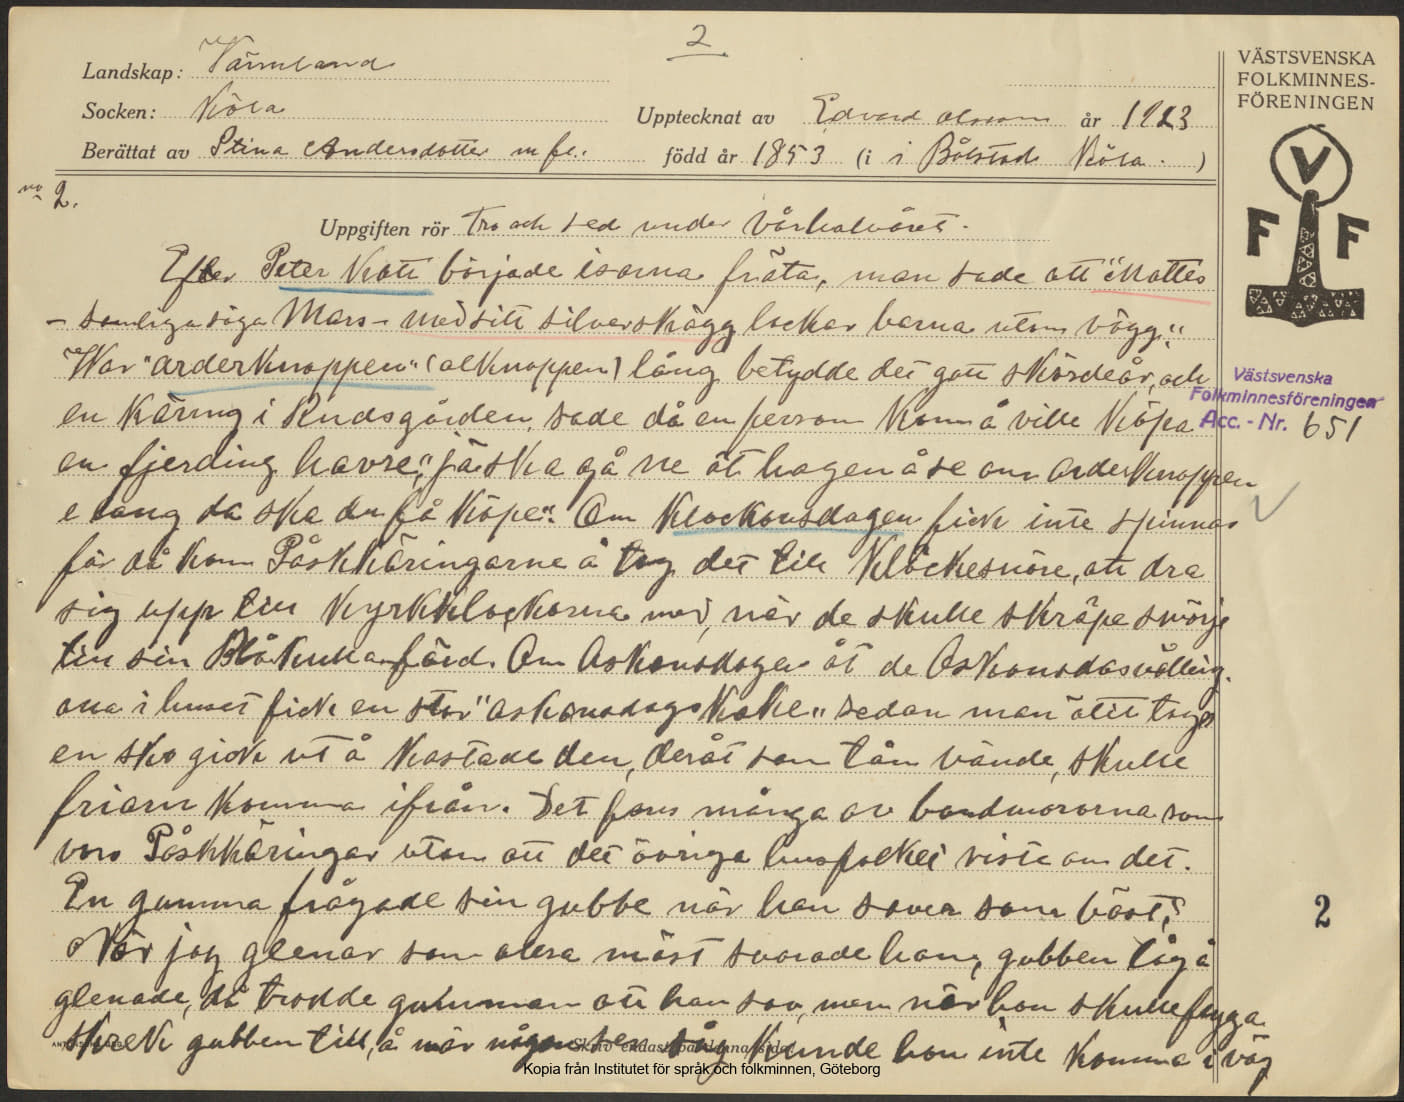 2
Landskap: Värmland
Socken: Köla
Upptecknat av Edvard Olsson år 1923
Berättat av Stina Andersdotter m fl. född år 1853 (i i Bålstad Köla. )
no 2.
Uppgiften rör Tro och sed under vårhalvåret.
Efter Peter Katt började isarna fräta, man sade att "Mattes
- somliga säga Mars - med sitt silverskägg lockar barna utom vägg."
War "arderknoppen" (alknoppen) lång betydde det gott skördeår, och
en käring i Rudsgården, sade då en person kom å ville köpa
en fjerding havre, "ja ska gå ne åt hagen å se om arderknoppen
e lång då ska du få köpe". Om Klockonsdagen fick inte spinnas
för då kom Påskkäringarne å tog det till Klockesnöre, att dra
sig upp till Kyrkklockorna med, när de skulle skrape smörje
till sin Blåkullafärd. Om Askonsdagen åt de Askonsdasvälling.
alla i huset fick en stor "askonsdagskake" sedan man ätit togs
en sko gick ut å kastade den, deråt som tån vände, skulle
friarn komma ifrån. Det fans många av bondmororna som
voro Påskkäringar utom att det övriga husfolket viste om det.
En gumma frågade sin gubbe när han sover som bäst,
När jag glenar som allra mäst svarade han, gubben låg å
glenade, då trodde gumman att han sov, men när hon skulle flyga
skrek gubben till, å när någon ser såg kunde hon inte komma i väg
VÄSTSVENSKA
FOLKMINNES-
FÖRENINGEN
V
F F
Västsvenska
Folkminnesföreningen
Acc. - Nr. 651
2
Kopia från Institutet för språk och folkminnen, Göteborg